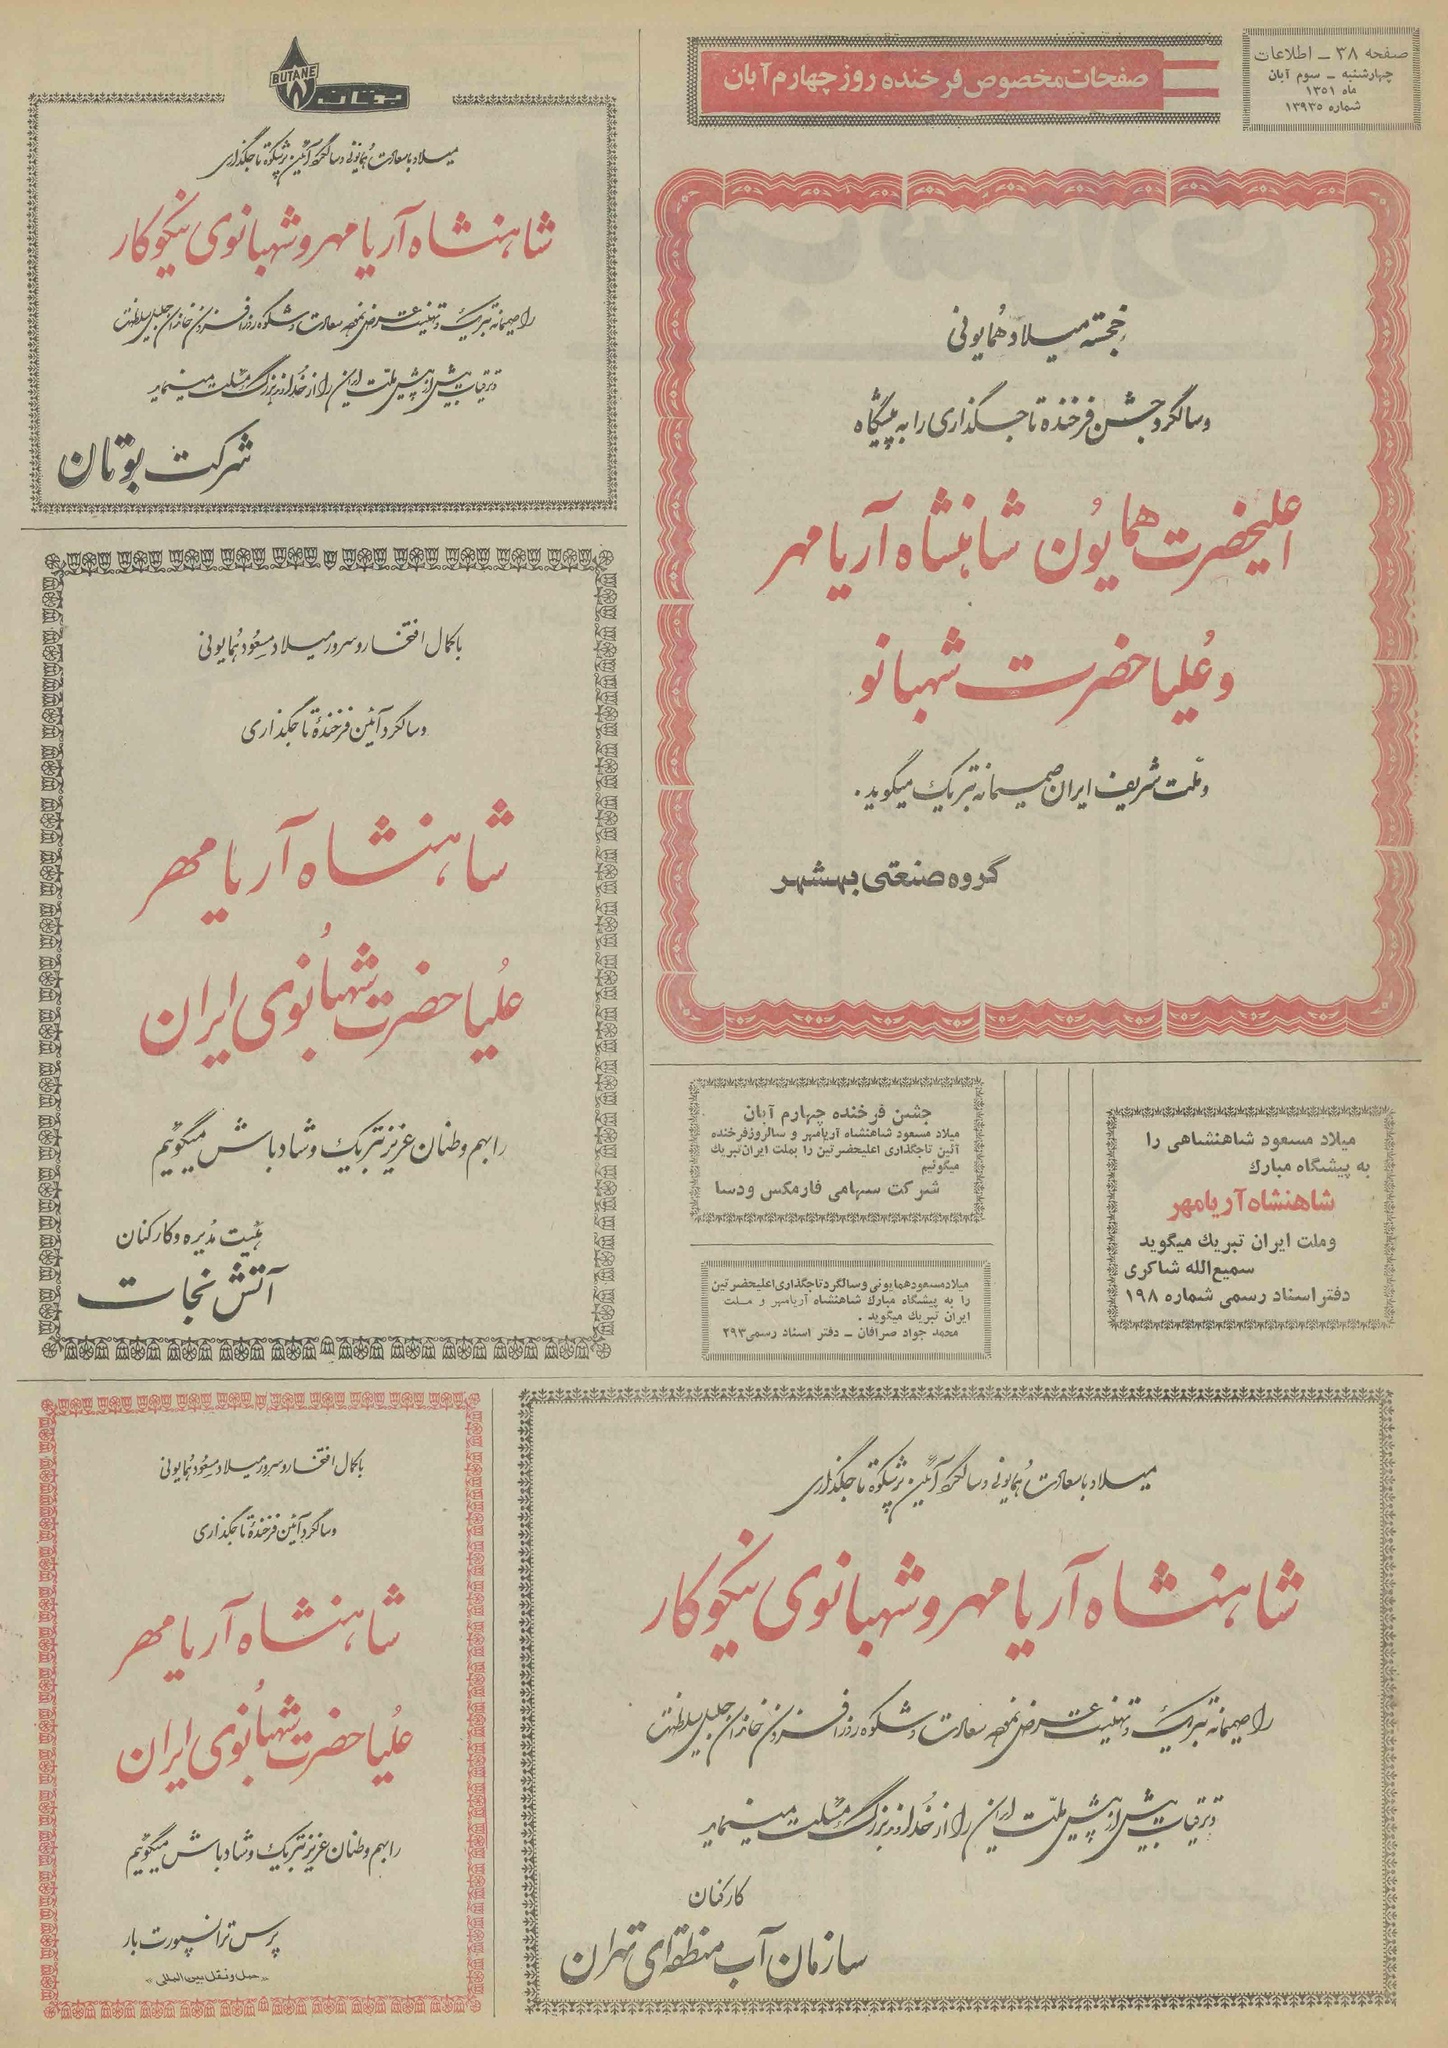 صفحه ۳۸ ـ اطلاعات
چهارشنبه ـ سوم آبان
ماه ۱۳۵۱
شماره ۱۳۹۳۵
صفحات مخصوص فرخنده روز چهارم آبان
خجسته میلاد همایونی
و سالگرد جشن فرخنده تاجگذاری را به پیشگاه
اعلیحضرت همایون شاهنشاه آریامهر
و علیاحضرت شهبانو
و ملت شریف ایران صمیمانه تبریک میگوید.
گروه صنعتی بهشهر
BUTANE
بوتان
میلاد با سعادت همایونی و سالگرد آئین پرشکوه تاجگذاری
شاهنشاه آریا مهر و شهبانوی نیکوکار
را صمیمانه تبریک و تهنیت عرض نموده سعادت و شکوه روزافزون خاندان جلیل سلطنت
و ترقیات بیش از پیش ملت ایران را از خداوند بزرگ مسئلت مینماید
شرکت بوتان
با کمال افتخار و سرور میلاد مسعود همایونی
و سالگرد آئین فرخندهٔ تاجگذاری
شاهنشاه آریا مهر
علیاحضرت شهبانوی ایران
را بهم وطنان عزیز تبریک و شادباش میگوئیم
هیئت مدیره و کارکنان
آتش نجات
جشن فرخنده چهارم آبان
میلاد مسعود شاهنشاه آریامهر و سالروز فرخنده
آئین تاجگذاری اعلیحضرتین را بملت ایران تبریك
میگوئیم
شرکت سهامی فارمکس ودسا
میلاد مسعود همایونی و سالگرد تاجگذاری اعلیحضرتین
را به پیشگاه مبارك شاهنشاه آریامهر و ملت
ایران تبریك میگوید .
محمد جواد صرافان ـ دفتر اسناد رسمی ۲۹۳
میلاد مسعود شاهنشاهی را
به پیشگاه مبارك
شاهنشاه آریامهر
وملت ایران تبریك میگوید
سمیع‌الله شاکری
دفتر اسناد رسمی شماره ۱۹۸
میلاد با سعادت همایونی و سالگرد آئین پرشکوه تاجگذاری
شاهنشاه آریا مهر و شهبانوی نیکوکار
را صمیمانه تبریک و تهنیت عرض نموده سعادت و شکوه روزافزون خاندان جلیل سلطنت
و ترقیات بیش از پیش ملت ایران را از خداوند بزرگ مسئلت مینماید
کارکنان
سازمان آب منطقه‌ای تهران
با کمال افتخار و سرور میلاد مسعود همایونی
و سالگرد آئین فرخندهٔ تاجگذاری
شاهنشاه آریا مهر
علیاحضرت شهبانوی ایران
را بهم وطنان عزیز تبریک و شادباش میگوئیم
پرس ترانسپورت بار
«حمل و نقل بین المللی»